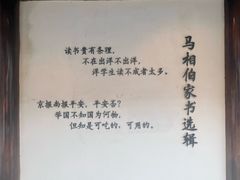 马相伯家书选辑
读书贵有条理，
不在出洋不出洋，
洋学生读不成者太多。
京报尚报平安，平安否？
学国不知国为何物，
但知是可吃的，可用的。